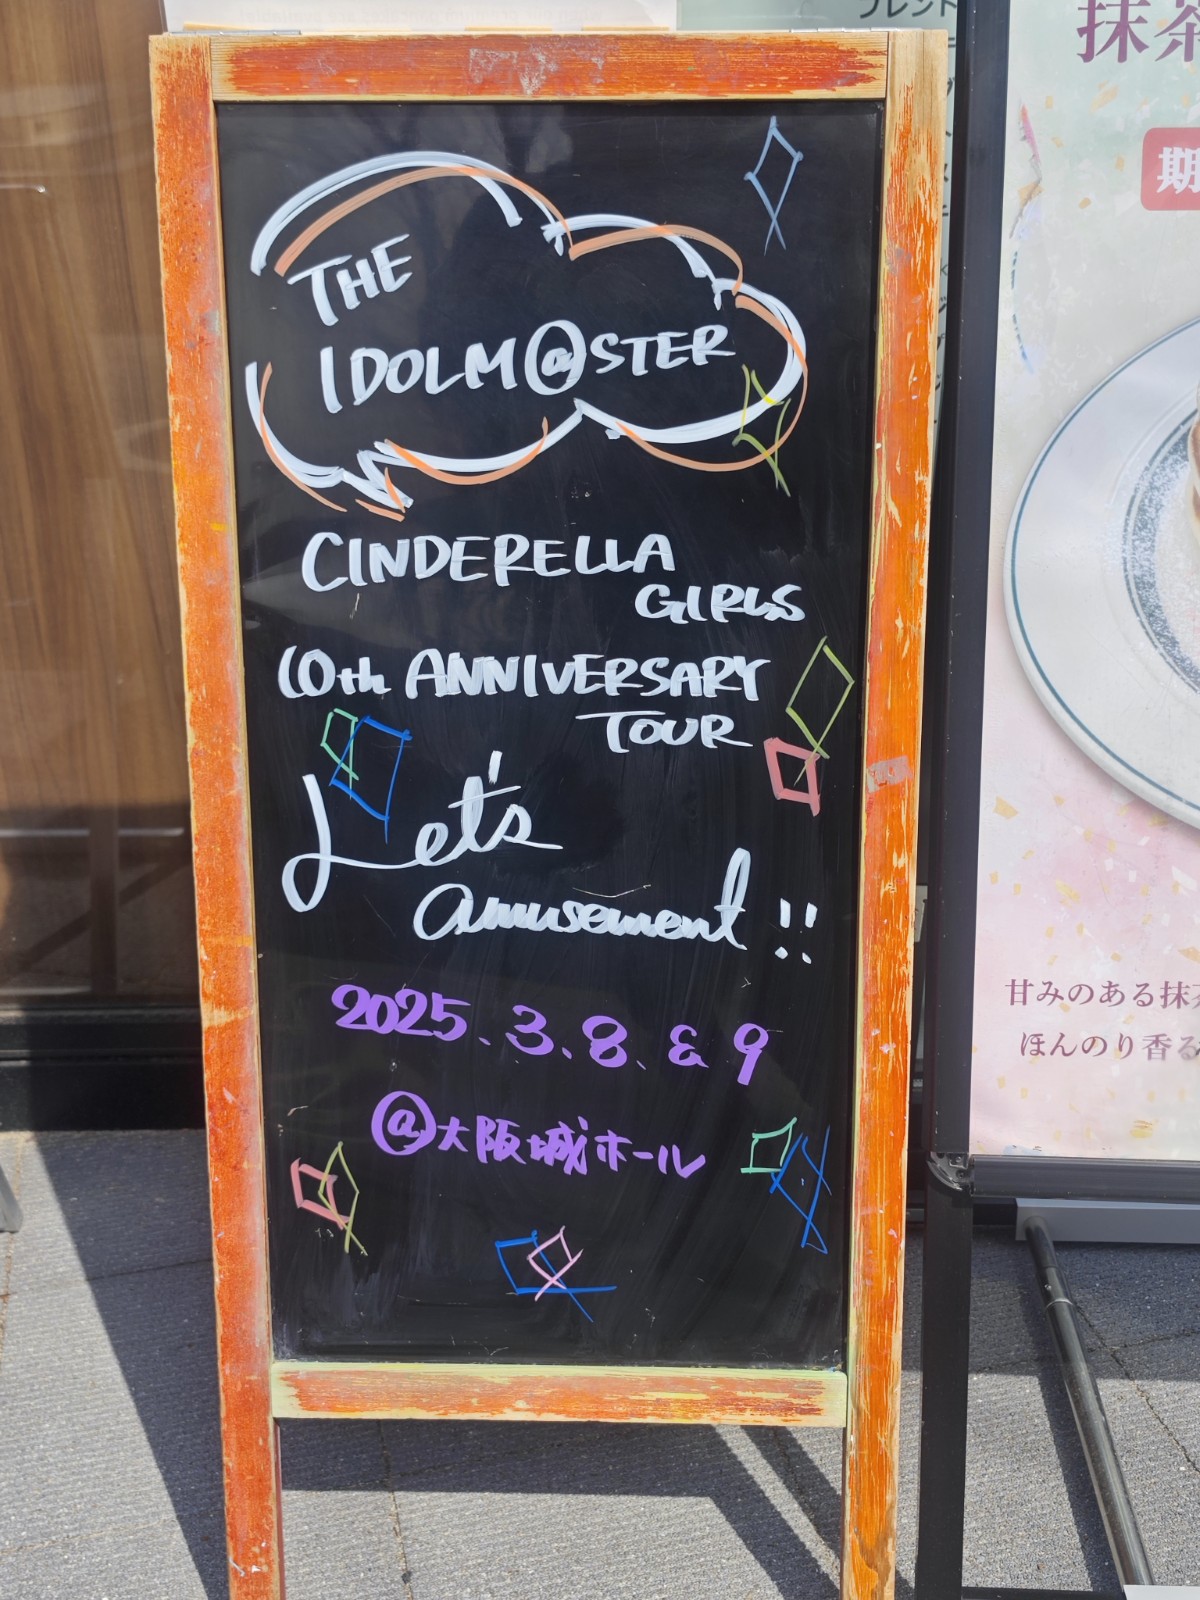 THE
IDOLM@STER
CINDERELLA
GIRLS
10th ANNIVERSARY
TOUR
Let's
amusement!!
2025.3.8.&9
@大阪城ホール
ブレンド
抹茶
期
甘みのある抹茶
ほんのり香る